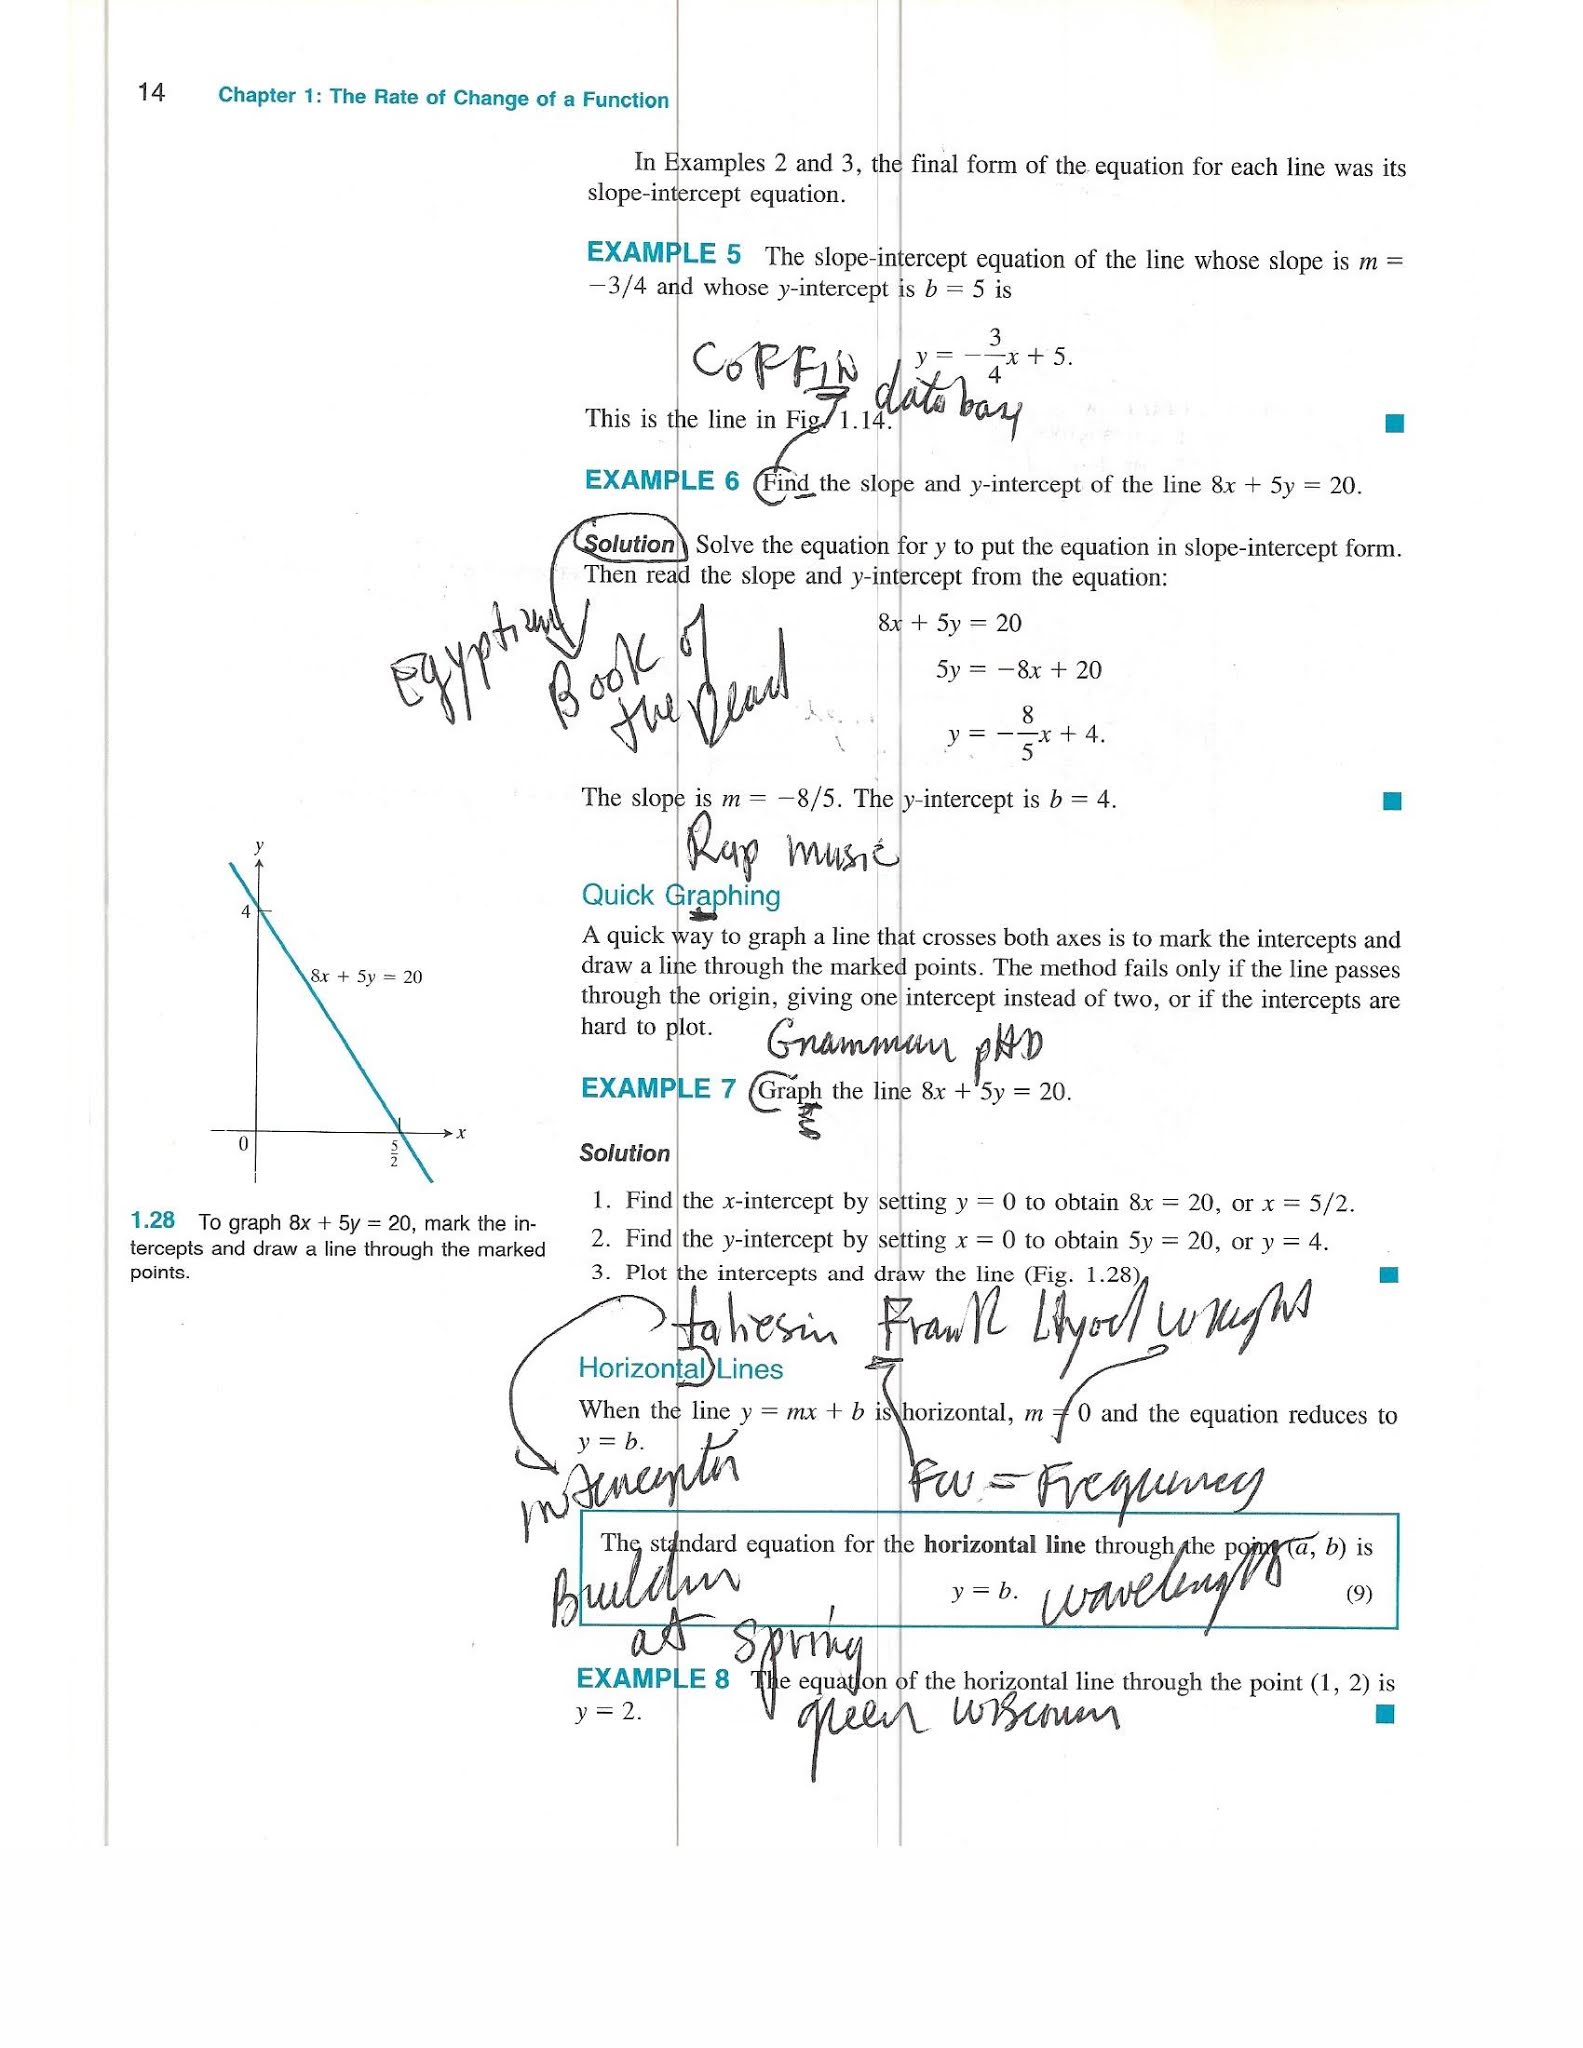 14 Chapter 1: The Rate of Change of a Function
In Examples 2 and 3, the final form of the equation for each line was its
slope-intercept equation.
EXAMPLE 5 The slope-intercept equation of the line whose slope is m =
−3/4 and whose y-intercept is b = 5 is
y = −3/4 x + 5.
COFFIN
data base
This is the line in Fig. 1.14.
EXAMPLE 6 Find the slope and y-intercept of the line 8x + 5y = 20.
Solution Solve the equation for y to put the equation in slope-intercept form.
Then read the slope and y-intercept from the equation:
8x + 5y = 20
Egyptian
Book of
the Dead
5y = −8x + 20
y = −8/5 x + 4.
The slope is m = −8/5. The y-intercept is b = 4.
Rap music
Quick Graphing
A quick way to graph a line that crosses both axes is to mark the intercepts and
draw a line through the marked points. The method fails only if the line passes
through the origin, giving one intercept instead of two, or if the intercepts are
hard to plot.
pHD
EXAMPLE 7 Graph the line 8x + 5y = 20.
Solution
1. Find the x-intercept by setting y = 0 to obtain 8x = 20, or x = 5/2.
2. Find the y-intercept by setting x = 0 to obtain 5y = 20, or y = 4.
3. Plot the intercepts and draw the line (Fig. 1.28).
y
4
8x + 5y = 20
0
5/2
x
1.28 To graph 8x + 5y = 20, mark the in-
tercepts and draw a line through the marked
points.
taliesin Frank Llyod wright
Horizontal Lines
When the line y = mx + b is horizontal, m = 0 and the equation reduces to
y = b.
FW = Frequency
The standard equation for the horizontal line through the point (a, b) is
y = b. (9)
wavelength
at spring
EXAMPLE 8 The equation of the horizontal line through the point (1, 2) is
y = 2.
green